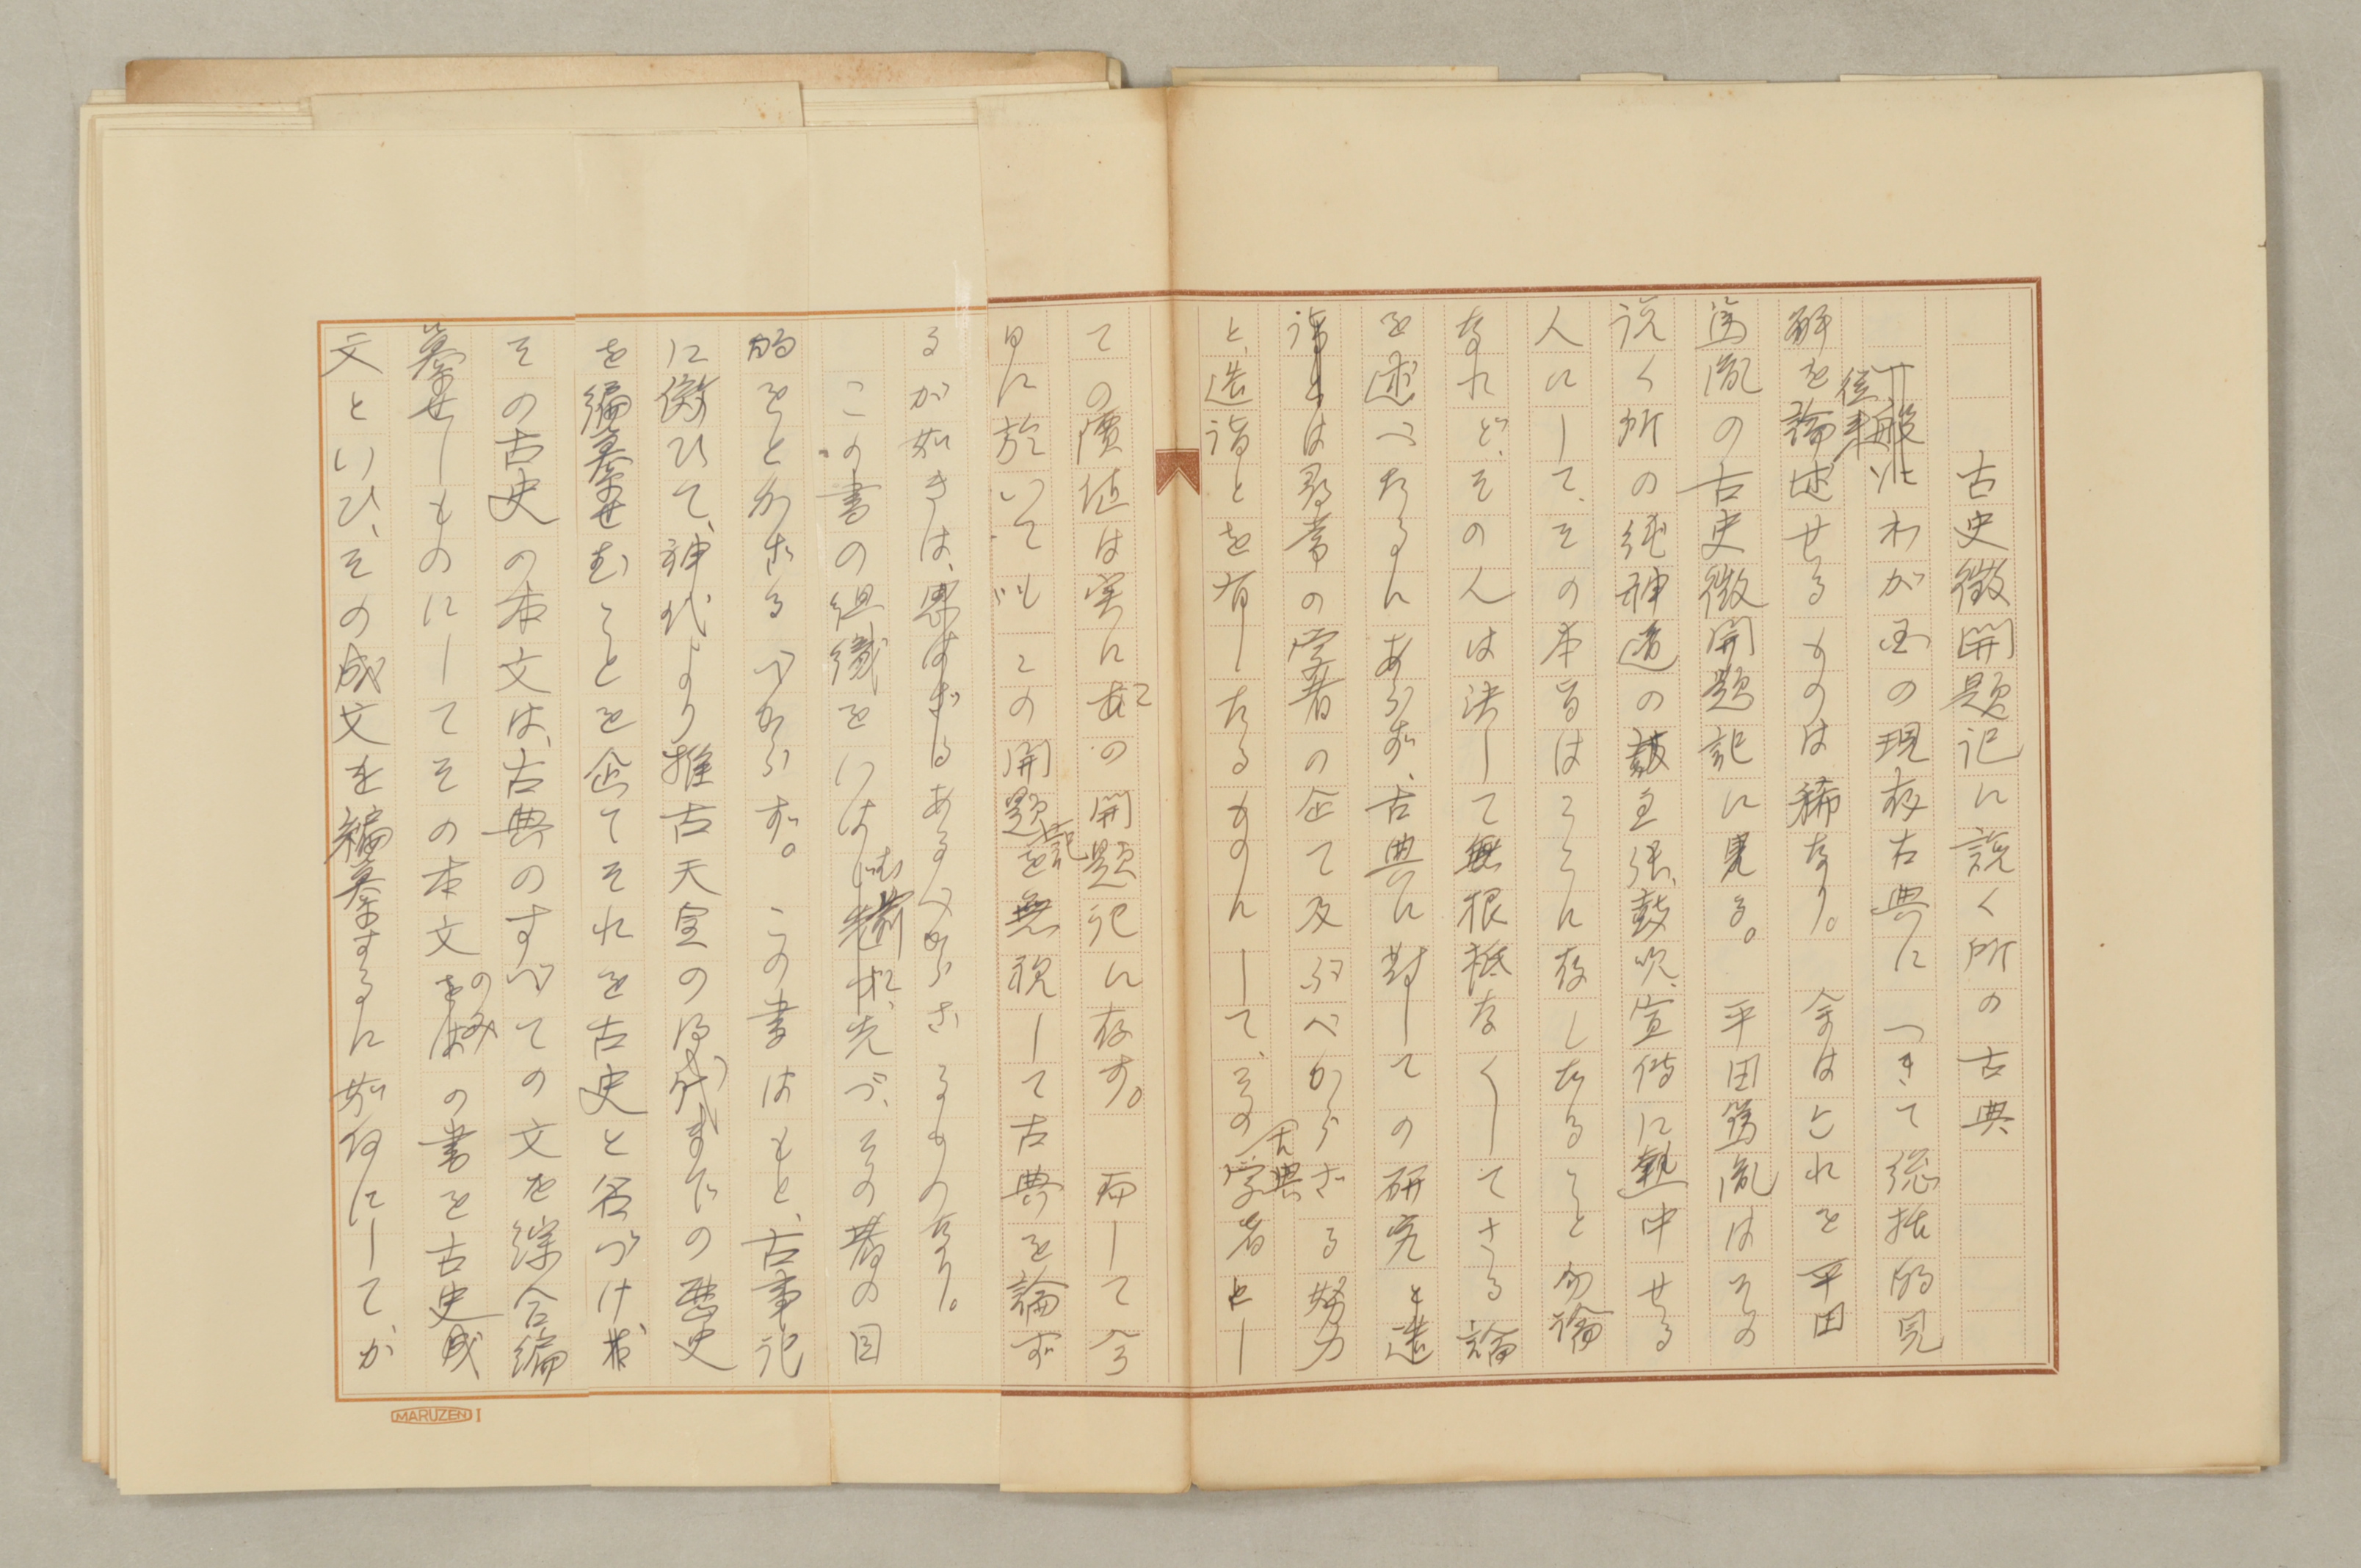 古史徴開題記に説く所の古典
従来わが国の現存古典につきて総括的見
解を論述せるものは稀なり。余はこれを平田
篤胤の古史徴開題記に見る。平田篤胤はその
説く所の純神道の主張、鼓吹、宣伝に熱中せる
人にして、その本旨はここに存したること勿論
なれど、その人は決して無根柢なくしてさる論
を述べたるにあらず、古典に対しての研究と造
詣とは尋常の学者の企て及ぶべからざる努力
と、造詣とを有したるものにして、その古典学者とし
ての価値は実にこの開題記に存す。而して今
日に於いてもこの開題記を無視して古典を論ず
るが如きは、思はざるあるべからざるものなり。
この書の組織をいはむ前に、先づ、その著の目
的をとかざるべからず。この書はもと、古事記
に傚ひて、神代より推古天皇の御代までの歴史
を編纂せむことを企てそれを古史と名づけ、
その古史の本文は、古典のすべての文を綜合編
纂せしものにしてその本文のみの書を古史成
文といひ、その成文を編纂するに如何にしてか
MARUZEN I